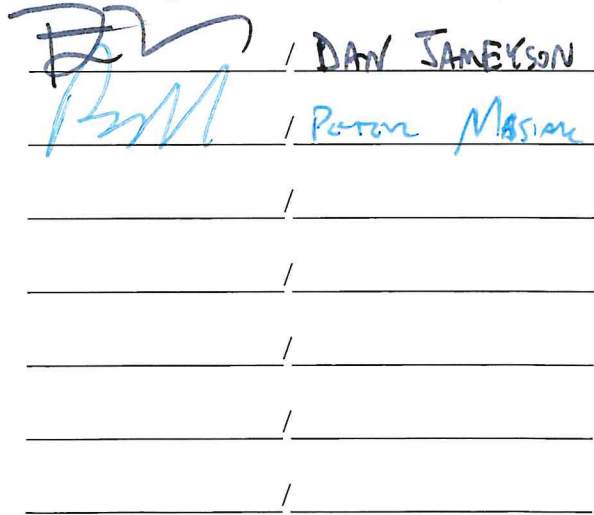 / DAN JAMEYSON
/ Peter Masiak
/
/
/
/
/